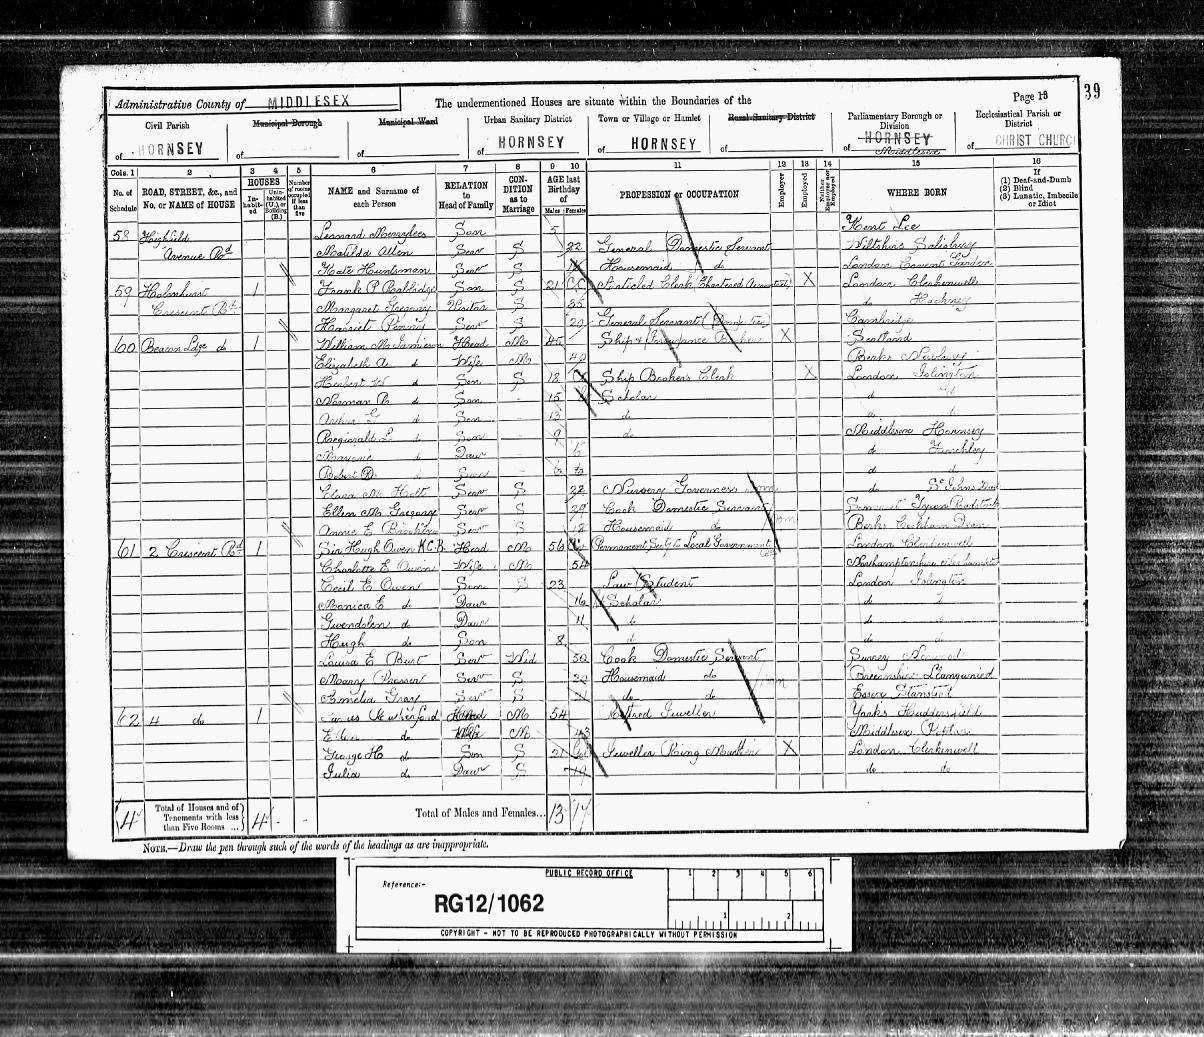 Administrative County of MIDDLESEX The undermentioned Houses are situate within the Boundaries of the Page 13 39
Civil Parish Municipal Borough Municipal Ward Urban Sanitary District Town or Village or Hamlet Rural Sanitary District Parliamentary Borough or Division Ecclesiastical Parish or District
of HORNSEY of of of HORNSEY of HORNSEY of of HORNSEY Middlesex of CHRIST CHURCH
Cols. 1 2 3 4 5 6 7 8 9 10 11 12 13 14 15 16
No. of Schedule ROAD, STREET, &c., and No. or NAME of HOUSE HOUSES Inhabited Uninhabited (U.), or Building (B.) Number of rooms occupied if less than five NAME and Surname of each Person RELATION to Head of Family CONDITION as to Marriage AGE last Birthday of Males Females PROFESSION or OCCUPATION Employer Employed Neither Employer nor Employed WHERE BORN If (1) Deaf-and-Dumb (2) Blind (3) Lunatic, Imbecile or Idiot
58 Highfield Son 5 Kent Lee
Avenue Rd Matilda Allen Serv S 22 General Domestic Servant Wiltshire Salisbury
Kate Huntsman Serv S Housemaid do London Covent Garden
59 Holmhurst 1 Frank P Son S 21 Articled Clerk (Chartered Accountant) X London Clerkenwell
Crescent Rd Margaret Gregory Visitor S 35 do Hackney
Harriet Penny Serv S 29 General Servant (Domestic) Cambridge
60 Beacon Ldge do 1 William Mc Jamieson Head M 45 Ship & Insurance Broker X Scotland
Elizabeth A do Wife M 40 Berks Newbury
Herbert W do Son S 18 Ship Brokers Clerk X London Islington
Norman R do Son - 15 Scholar do do
Arthur G do Son - 13 do do do
Reginald L do Son - 9 do Middlesex Hornsey
Marjorie do Daur - 6 do Finchley
Robert D. do - do do
Clara M Holt Serv S 22 Nursery Governess do St Johns Wood
Ellen M Gregory Serv S 29 Cook Domestic Servant Somerset
Annie E Serv S 18 Housemaid do Berks Cookham Dean
61 2 Crescent Rd 1 Sir Hugh Owen K.C.B. Head M 56 Permanent Secty to Local Government Bd London Clerkenwell
Charlotte E Owen Wife M 54 Northamptonshire Northampton
Cecil E Owen Son S 23 Law Student London Islington
Monica E do Daur 16 Scholar do do
Gwendolen do Daur 11 do do do
Hugh do Son 8 do do do
Louisa E Burt Serv Wid 50 Cook Domestic Servant Surrey Norwood
Mary Prosser Serv S 20 Housemaid do
Amelia Gray Serv S 21 do do Essex Stansted
62 4 do 1 James Rutherford Head M 54 Retired Jeweller Yorks Huddersfield
Ellen do Wife M 43 Middlesex Poplar
George H do Son S 21 Jeweller (Ring Maker) X London Clerkenwell
Julia do Daur S 19 do do
4 Total of Houses and of Tenements with less than Five Rooms ... 4 - - Total of Males and Females... 13 17
NOTE.—Draw the pen through such of the words of the headings as are inappropriate.
PUBLIC RECORD OFFICE 1 2 3 4 5 6
Reference:-
RG12/1062 1 2
COPYRIGHT - NOT TO BE REPRODUCED PHOTOGRAPHICALLY WITHOUT PERMISSION